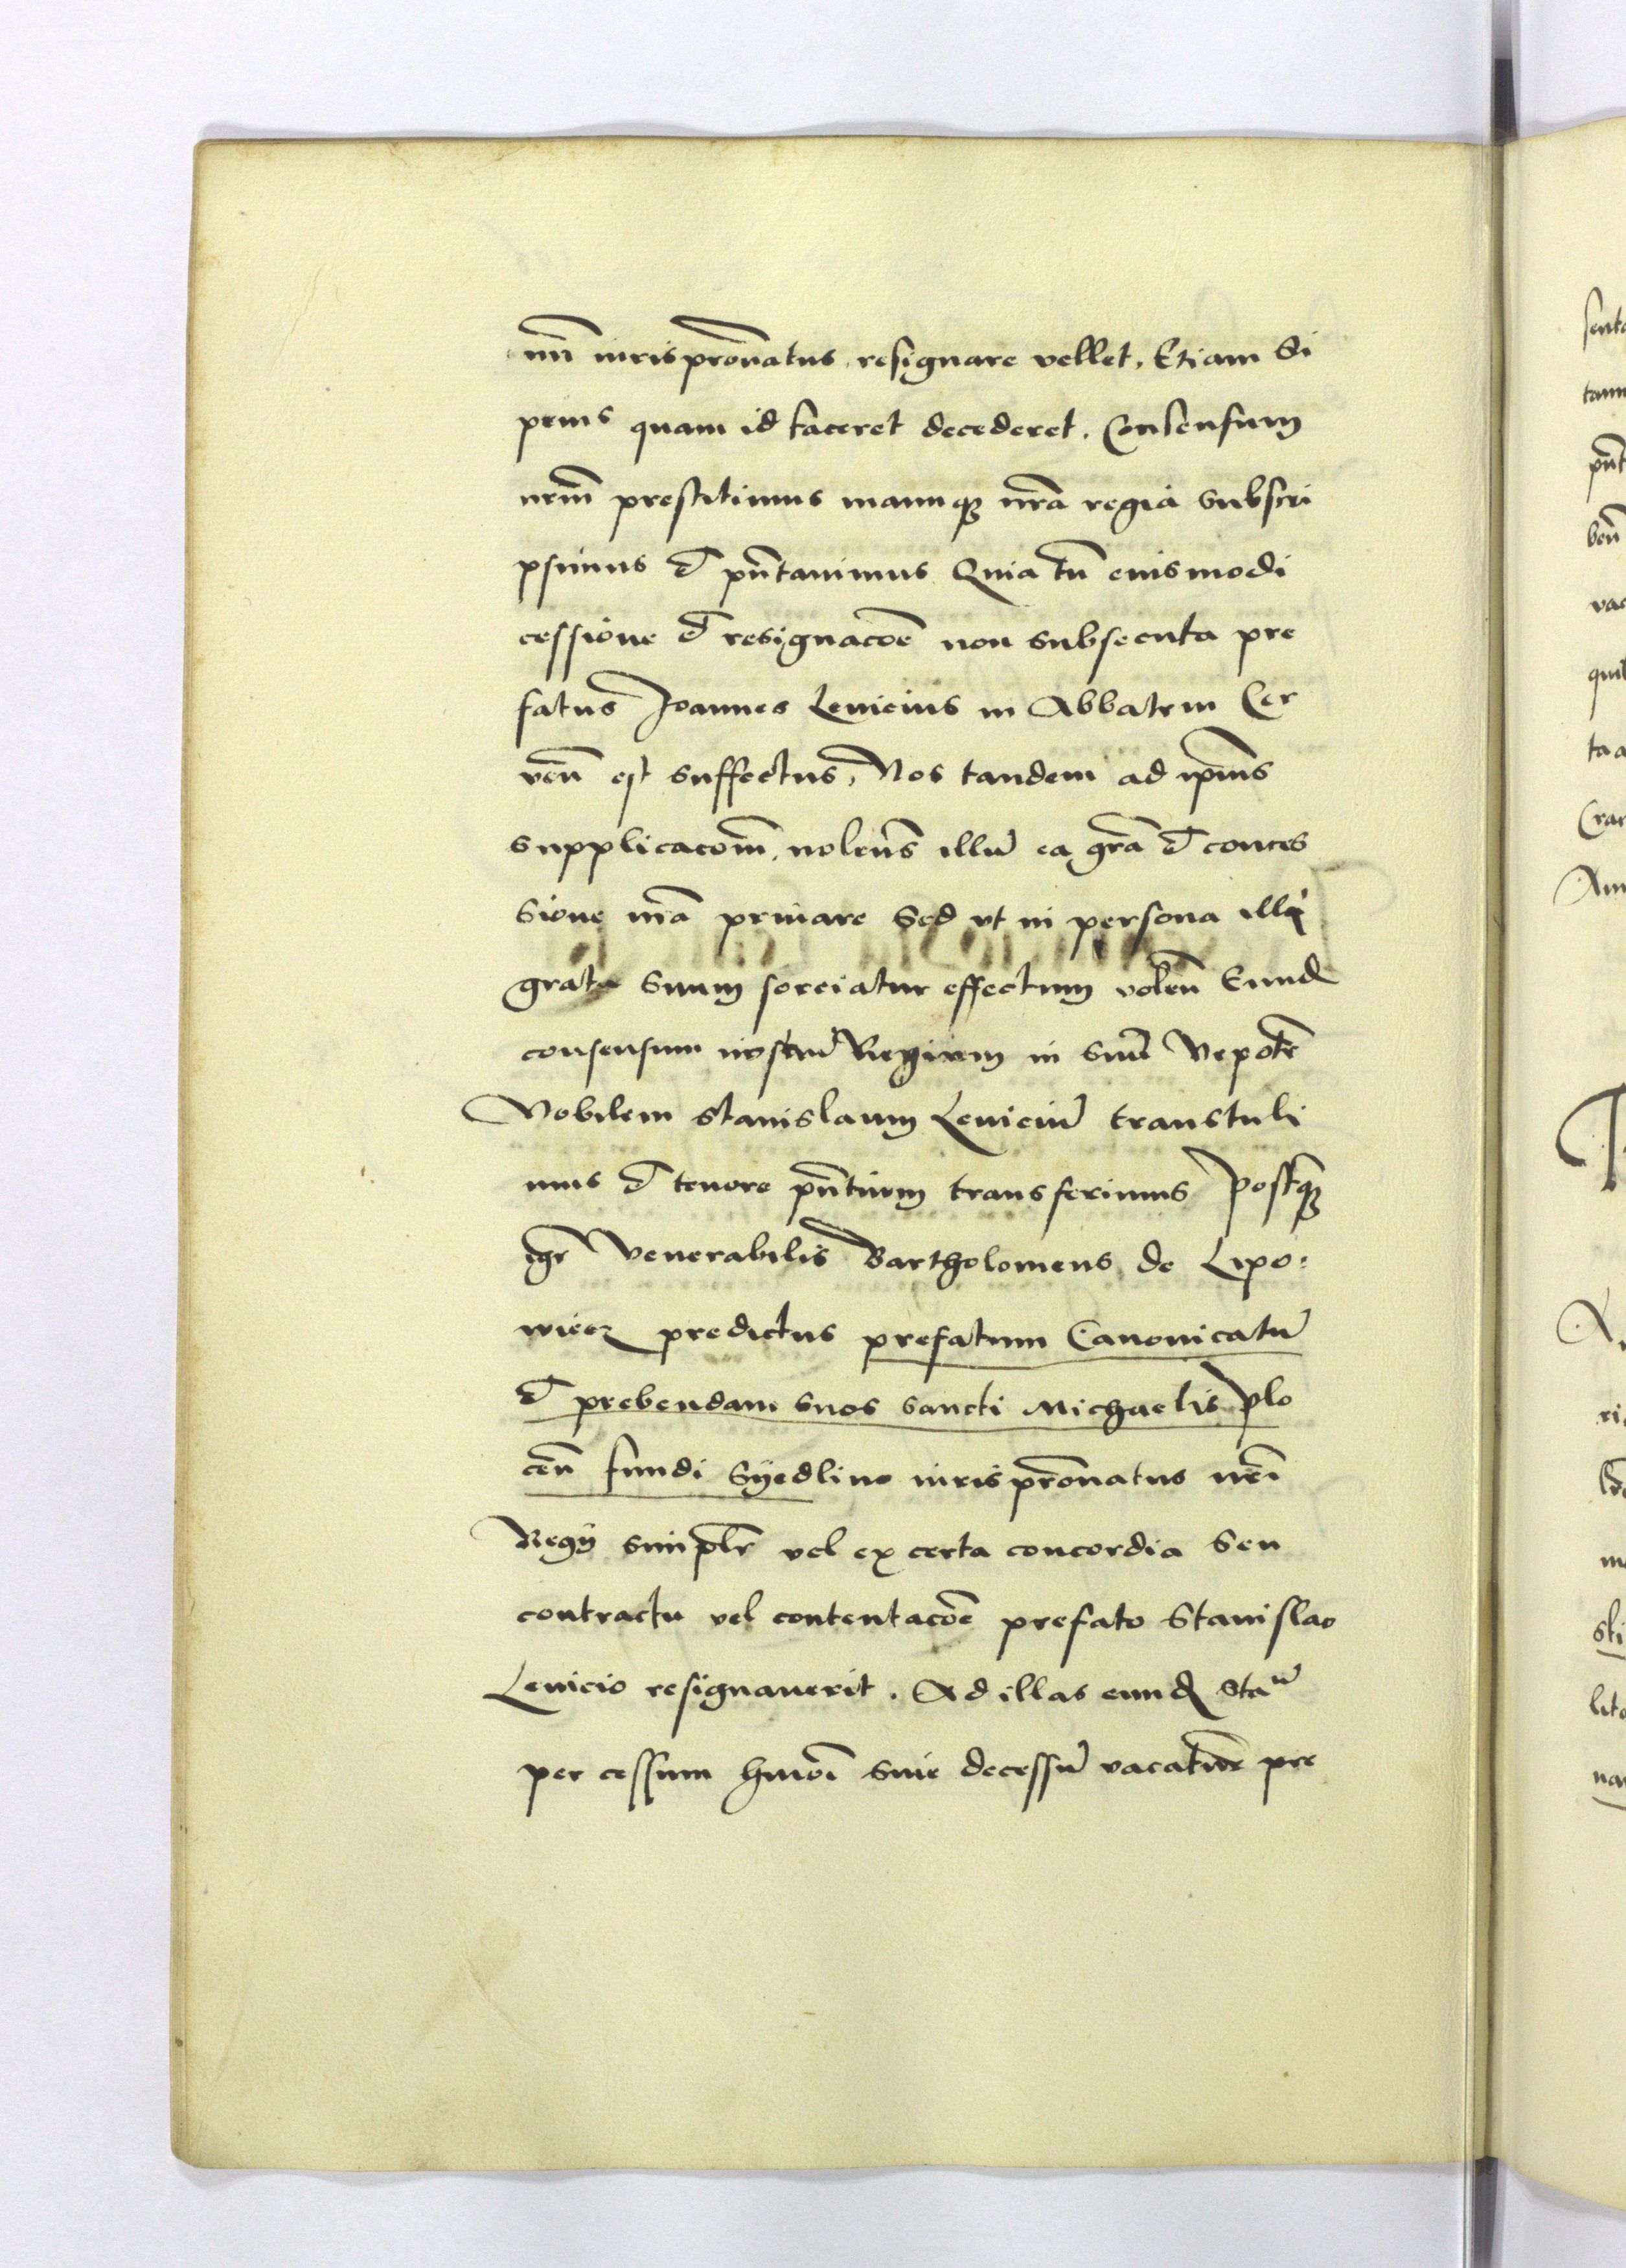 nrī iuris pronatus resignare vellet. Etiam Si
prius quam id faceret decederet. Consensum
nrm̄ prestitimus manuq; nrā regia subscri
psimus et pn̄tauimus Quia tn̄ eiusmodi
cessione et resignacōe non subsecuta pre
fatus Joannes Leuicius in Abbatem Cer
ven̄ est suffectus, Nos tandem ad ipius
supplicacōm, nolen̄s illū ea grā et conces
sione nrā priuare Sed vt in persona illi
grata suum sorciatur effectum volen̄ Eund
consensum nostrū Regium in suū Nepotē
Nobilem Stanislaum Leuiciū transtuli
mus et tenore pn̄tium transferimus Postq;
igr Venerabilis Bartholomeus de Lipo:
wiecz predictus prefatum Canonicatū
et prebendam suos sancti Michaelis Plo
cen̄ fundi Syedlino iuris pronatus nri
Regij simplr vel ex certa concordia Seu
contractu vel contentacōe prefato Stanislao
Leuicio resignauerit. Ad illas eund Staū
per cessum hmōi siue decessū vacatur pre
sent
tam
pn̄t
ben̄
vac
quit
ta a
Crac